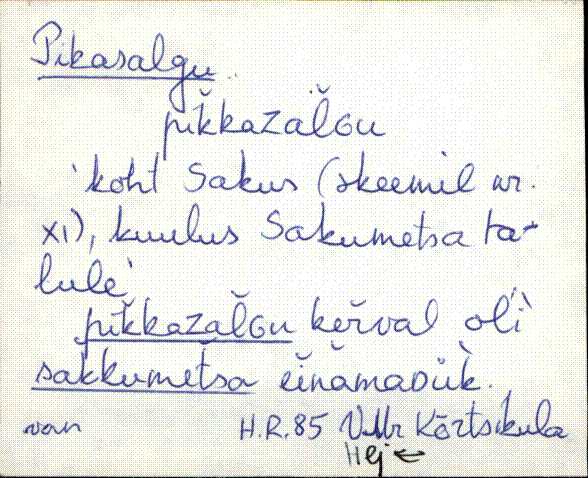 Pikasalgu
pik̆kazal̆ɢu
'koht Sakus (skeemil nr.
XI), kuulus Sakumetsa ta-
lule'
pik̆kazal̆ɢu ker̆val ol'i
sakkumet̆sa eĭnamaᴅŭk.
van H.R.85 VMr Kõrtsikula
Hej ←